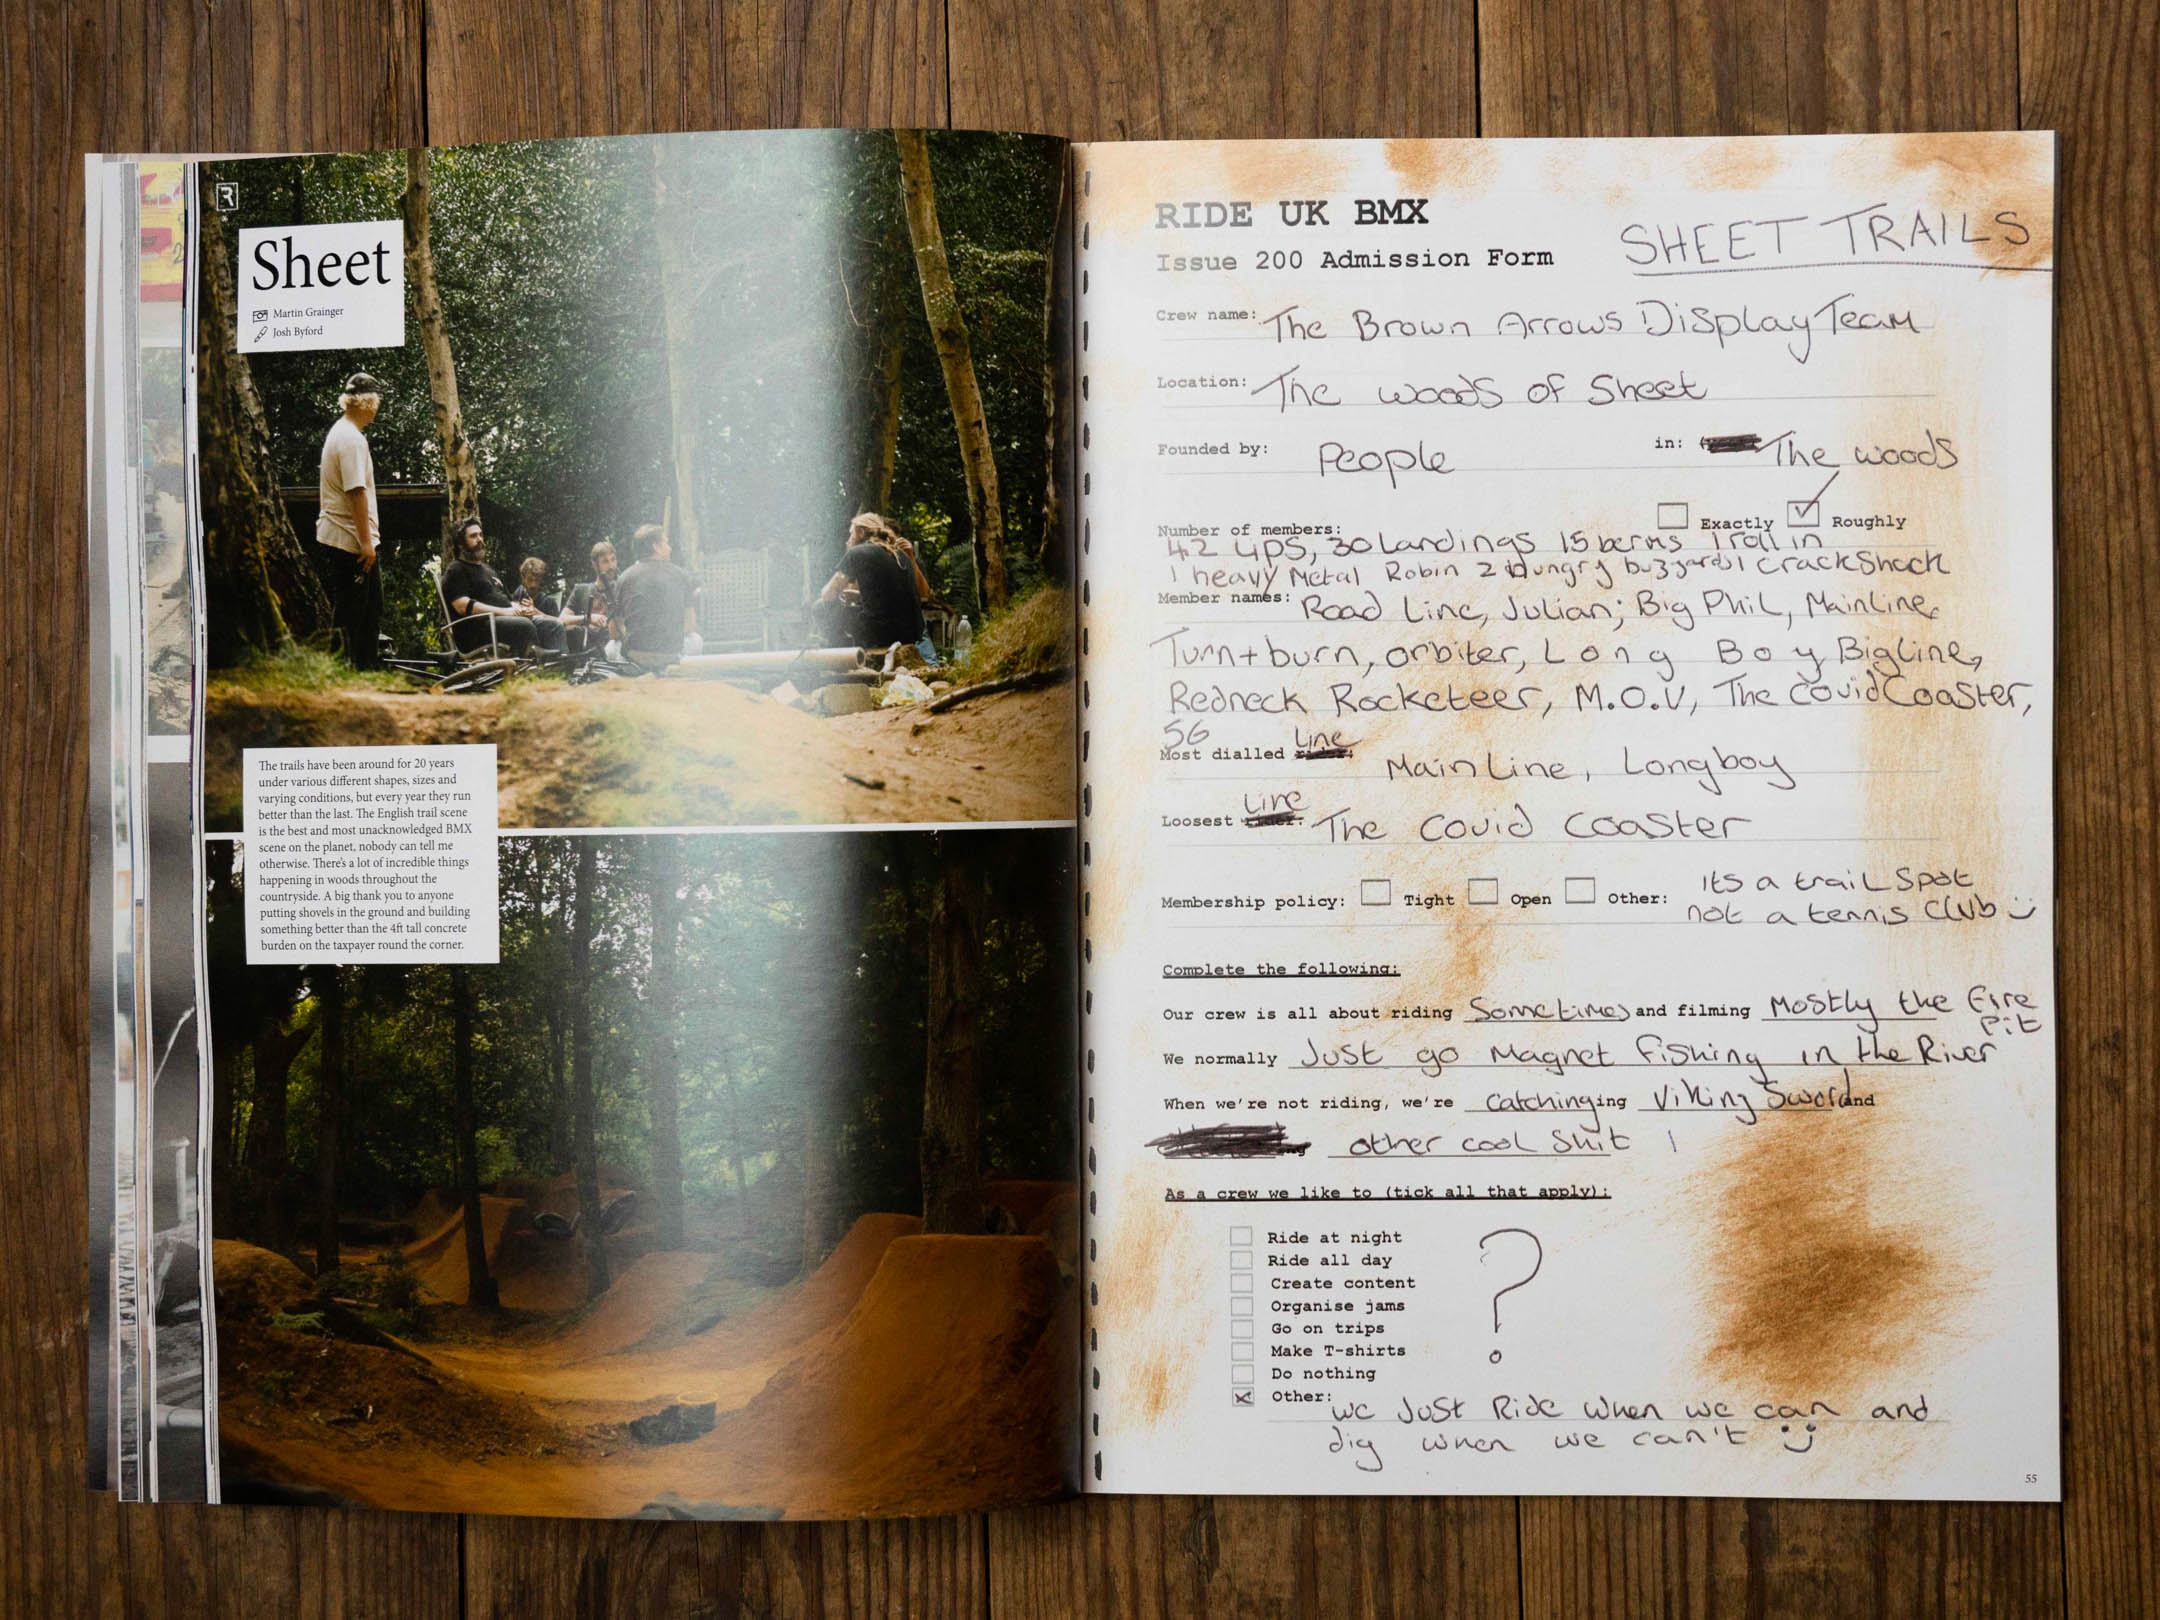 R
Sheet
Martin Grainger
Josh Byford
The trails have been around for 20 years
under various different shapes, sizes and
varying conditions, but every year they run
better than the last. The English trail scene
is the best and most unacknowledged BMX
scene on the planet, nobody can tell me
otherwise. There's a lot of incredible things
happening in woods throughout the
countryside. A big thank you to anyone
putting shovels in the ground and building
something better than the 4ft tall concrete
burden on the taxpayer round the corner.
RIDE UK BMX
Issue 200 Admission Form
SHEET TRAILS
Crew name: The Brown Arrows Display Team
Location: The woods of Sheet
Founded by: People in: The woods
Number of members: Exactly Roughly
42 lips, 30 Landings 15 berms 1 roll in
1 heavy Metal Robin 2 hungry buzzards 1 crack shack
Member names: Road Line, Julian; Big Phil, Mainline,
Turn + burn, orbiter, Long Boy Bigline,
Redneck Rocketeer, M.O.V, The Covid Coaster,
56
Most dialled rider: Line Main Line, Longboy
Loosest rider: Line The Covid Coaster
Membership policy: Tight Open Other: its a trail spot
not a tennis club
Complete the following:
Our crew is all about riding Sometimes and filming Mostly the Fire
Pit
We normally Just go Magnet Fishing in the River
When we're not riding, we're Catchinging Viking Sword and
other cool shit !
As a crew we like to (tick all that apply):
Ride at night
Ride all day
Create content
Organise jams
Go on trips
Make T-shirts
Do nothing
?
Other: we Just Ride when we can and
dig when we can't
55